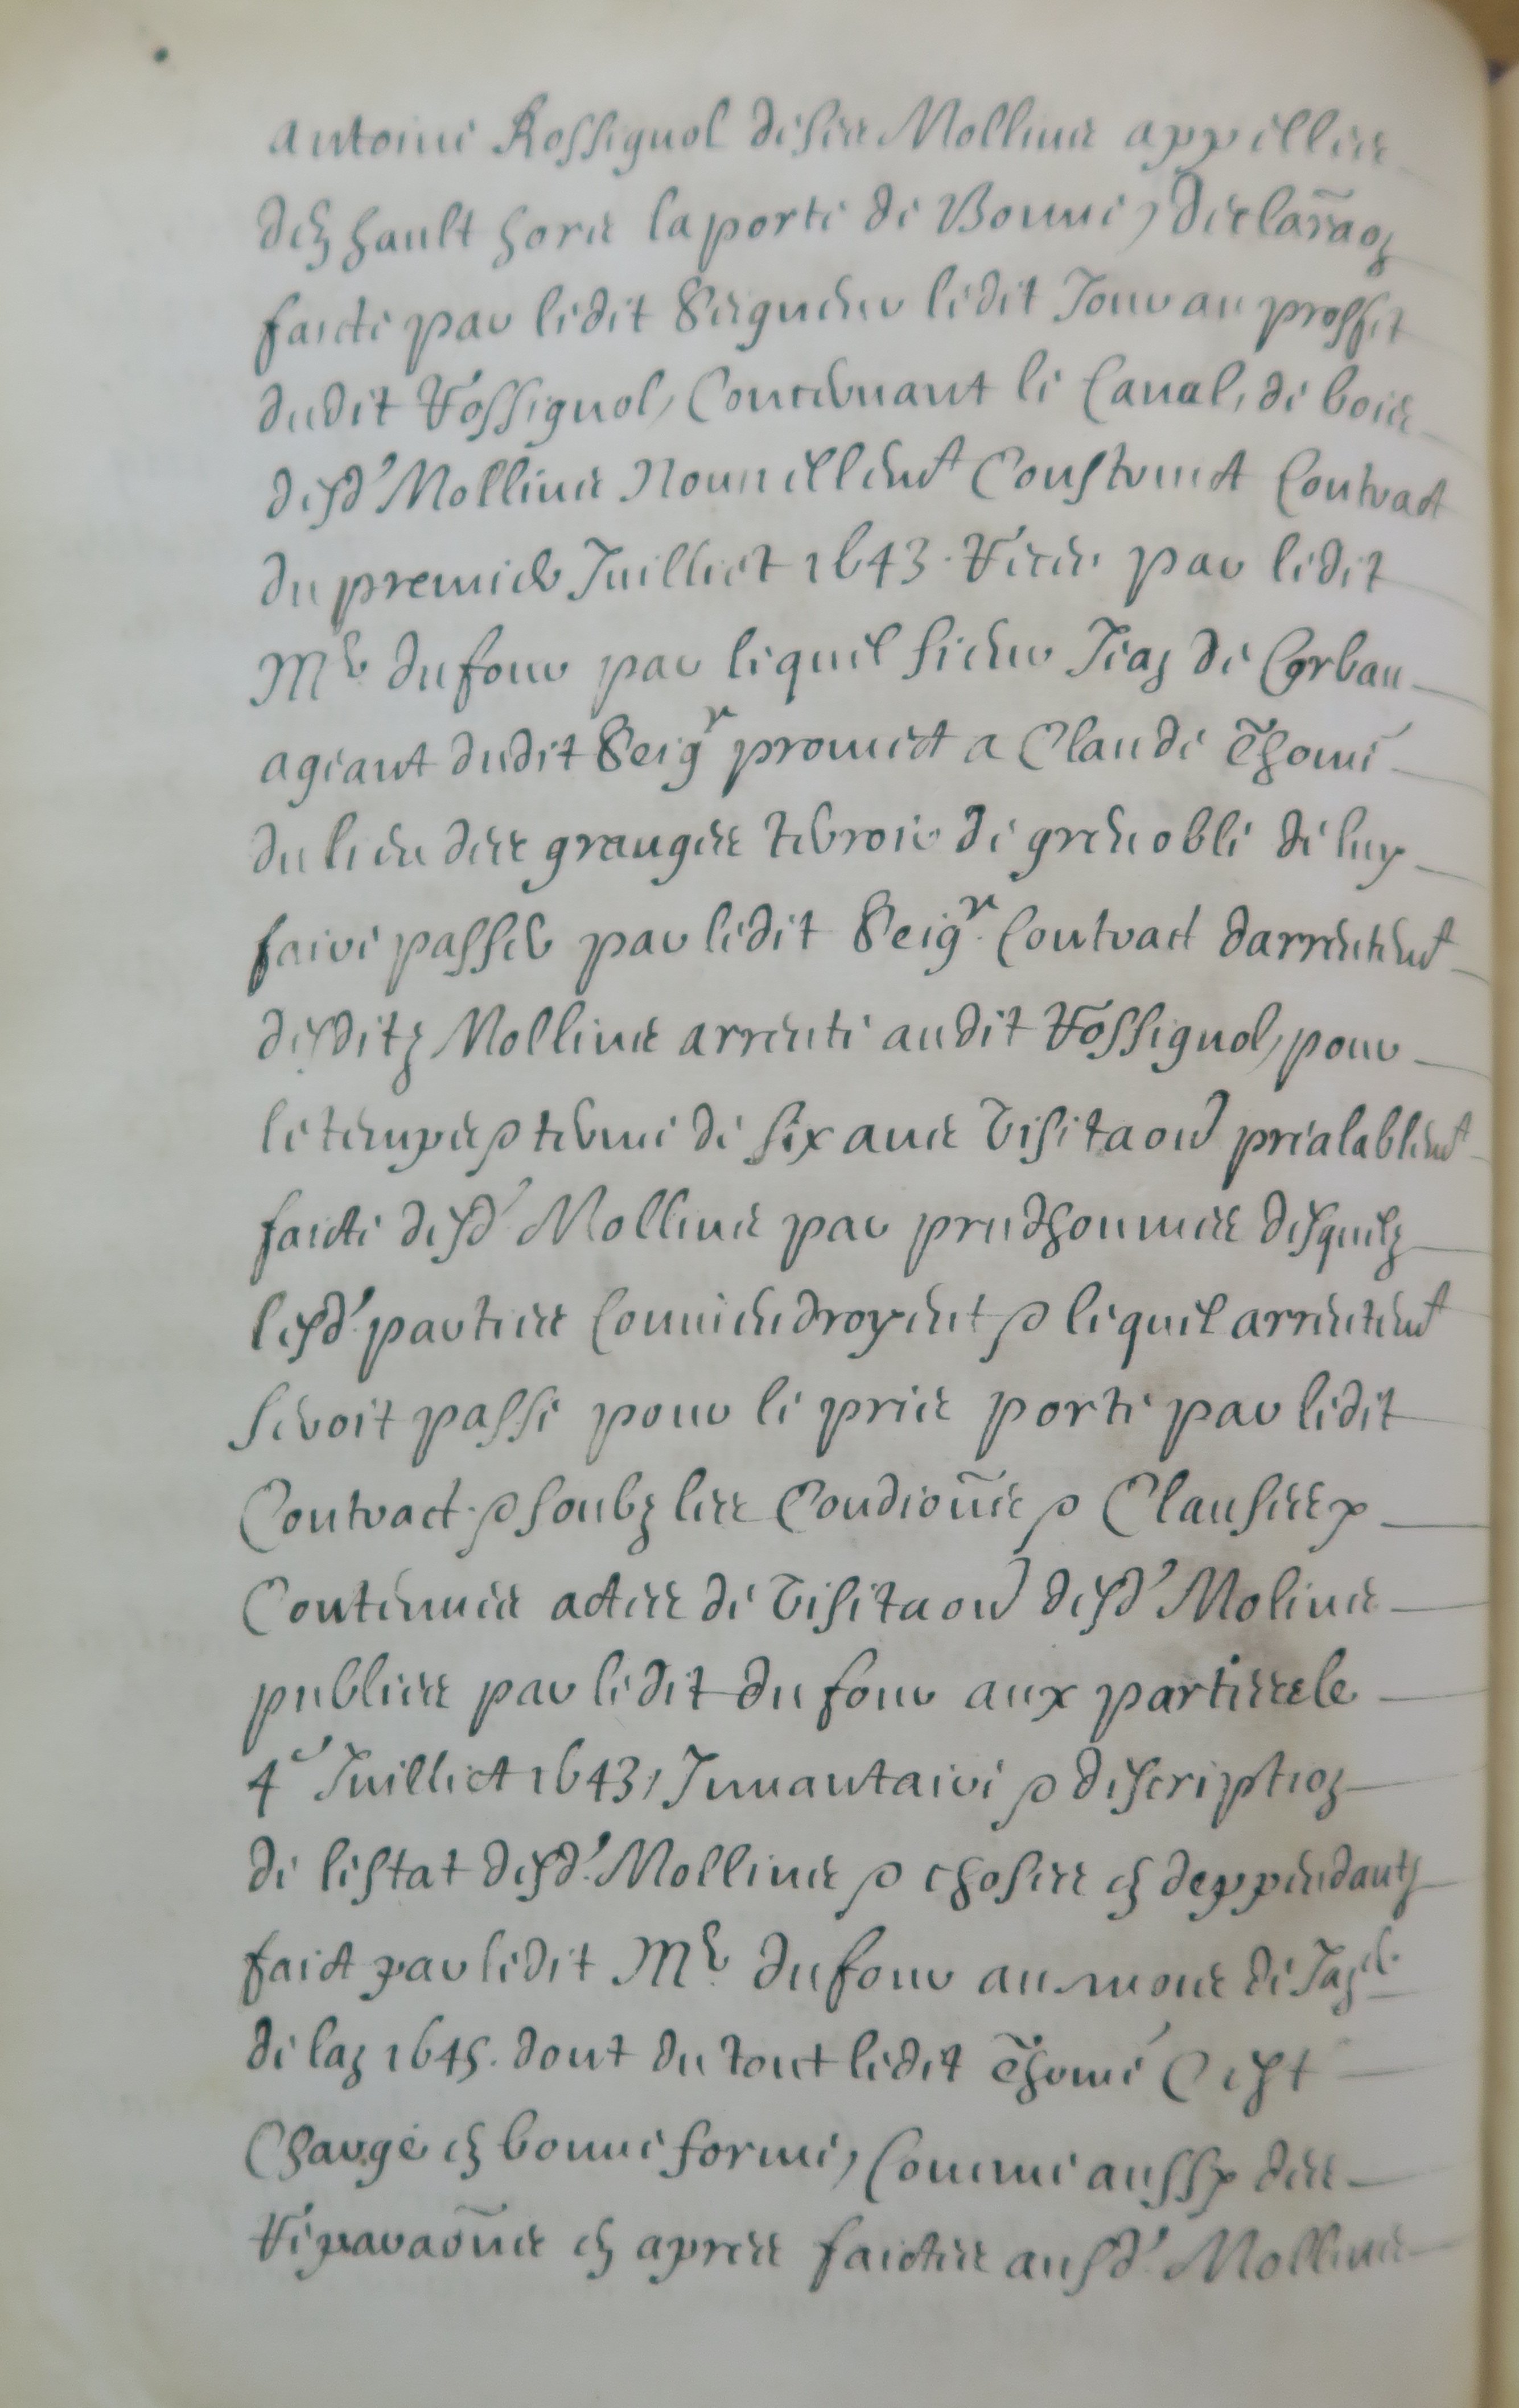 Antoine Rossignol desies Mollines appellees
den hault hors la porte de Bonne, declãraon
faicte par ledit Seigneur ledit Jour au proffit
dudit Rossignol, Concernant le Canal, de bois
desd' Mollines Nouvellemt Construict Contract
du premier Juilliet 1643. Receu par ledit
Mr. dufour par lequel sieur Jean de Corbau
ageant dudit Seigr promect a Claude Thomé
du lieu des granges terroir de grenoble de luy
faire passer par ledit Seigr. Contract darrentemt
desditz Mollines arrenté audit Rossignol, pour
le temps et terme de six ans Visitaon prealablemt
faicte desd' Mollines par prudhommes desquelz
lesd' parties Conviendroyent et lequel arrentemt
seroit passé pour le pris porté par ledit
Contract et soubz les Condiõnes et Clauses y
Contenues actes de Visitaon desd' Molines
publies par ledit dufour aux parties le
4e Juilliet 1643, Inuantaire et description
de lestat desd' Mollines et choses en deppendantz
faict par ledit Mr. dufour au mois de Janer.
de lan 1645. dont du tout ledit Thomé C'est
Chargé en bonne forme, Comme aussy des
Reparaõnes en apres faictes ausd' Mollines